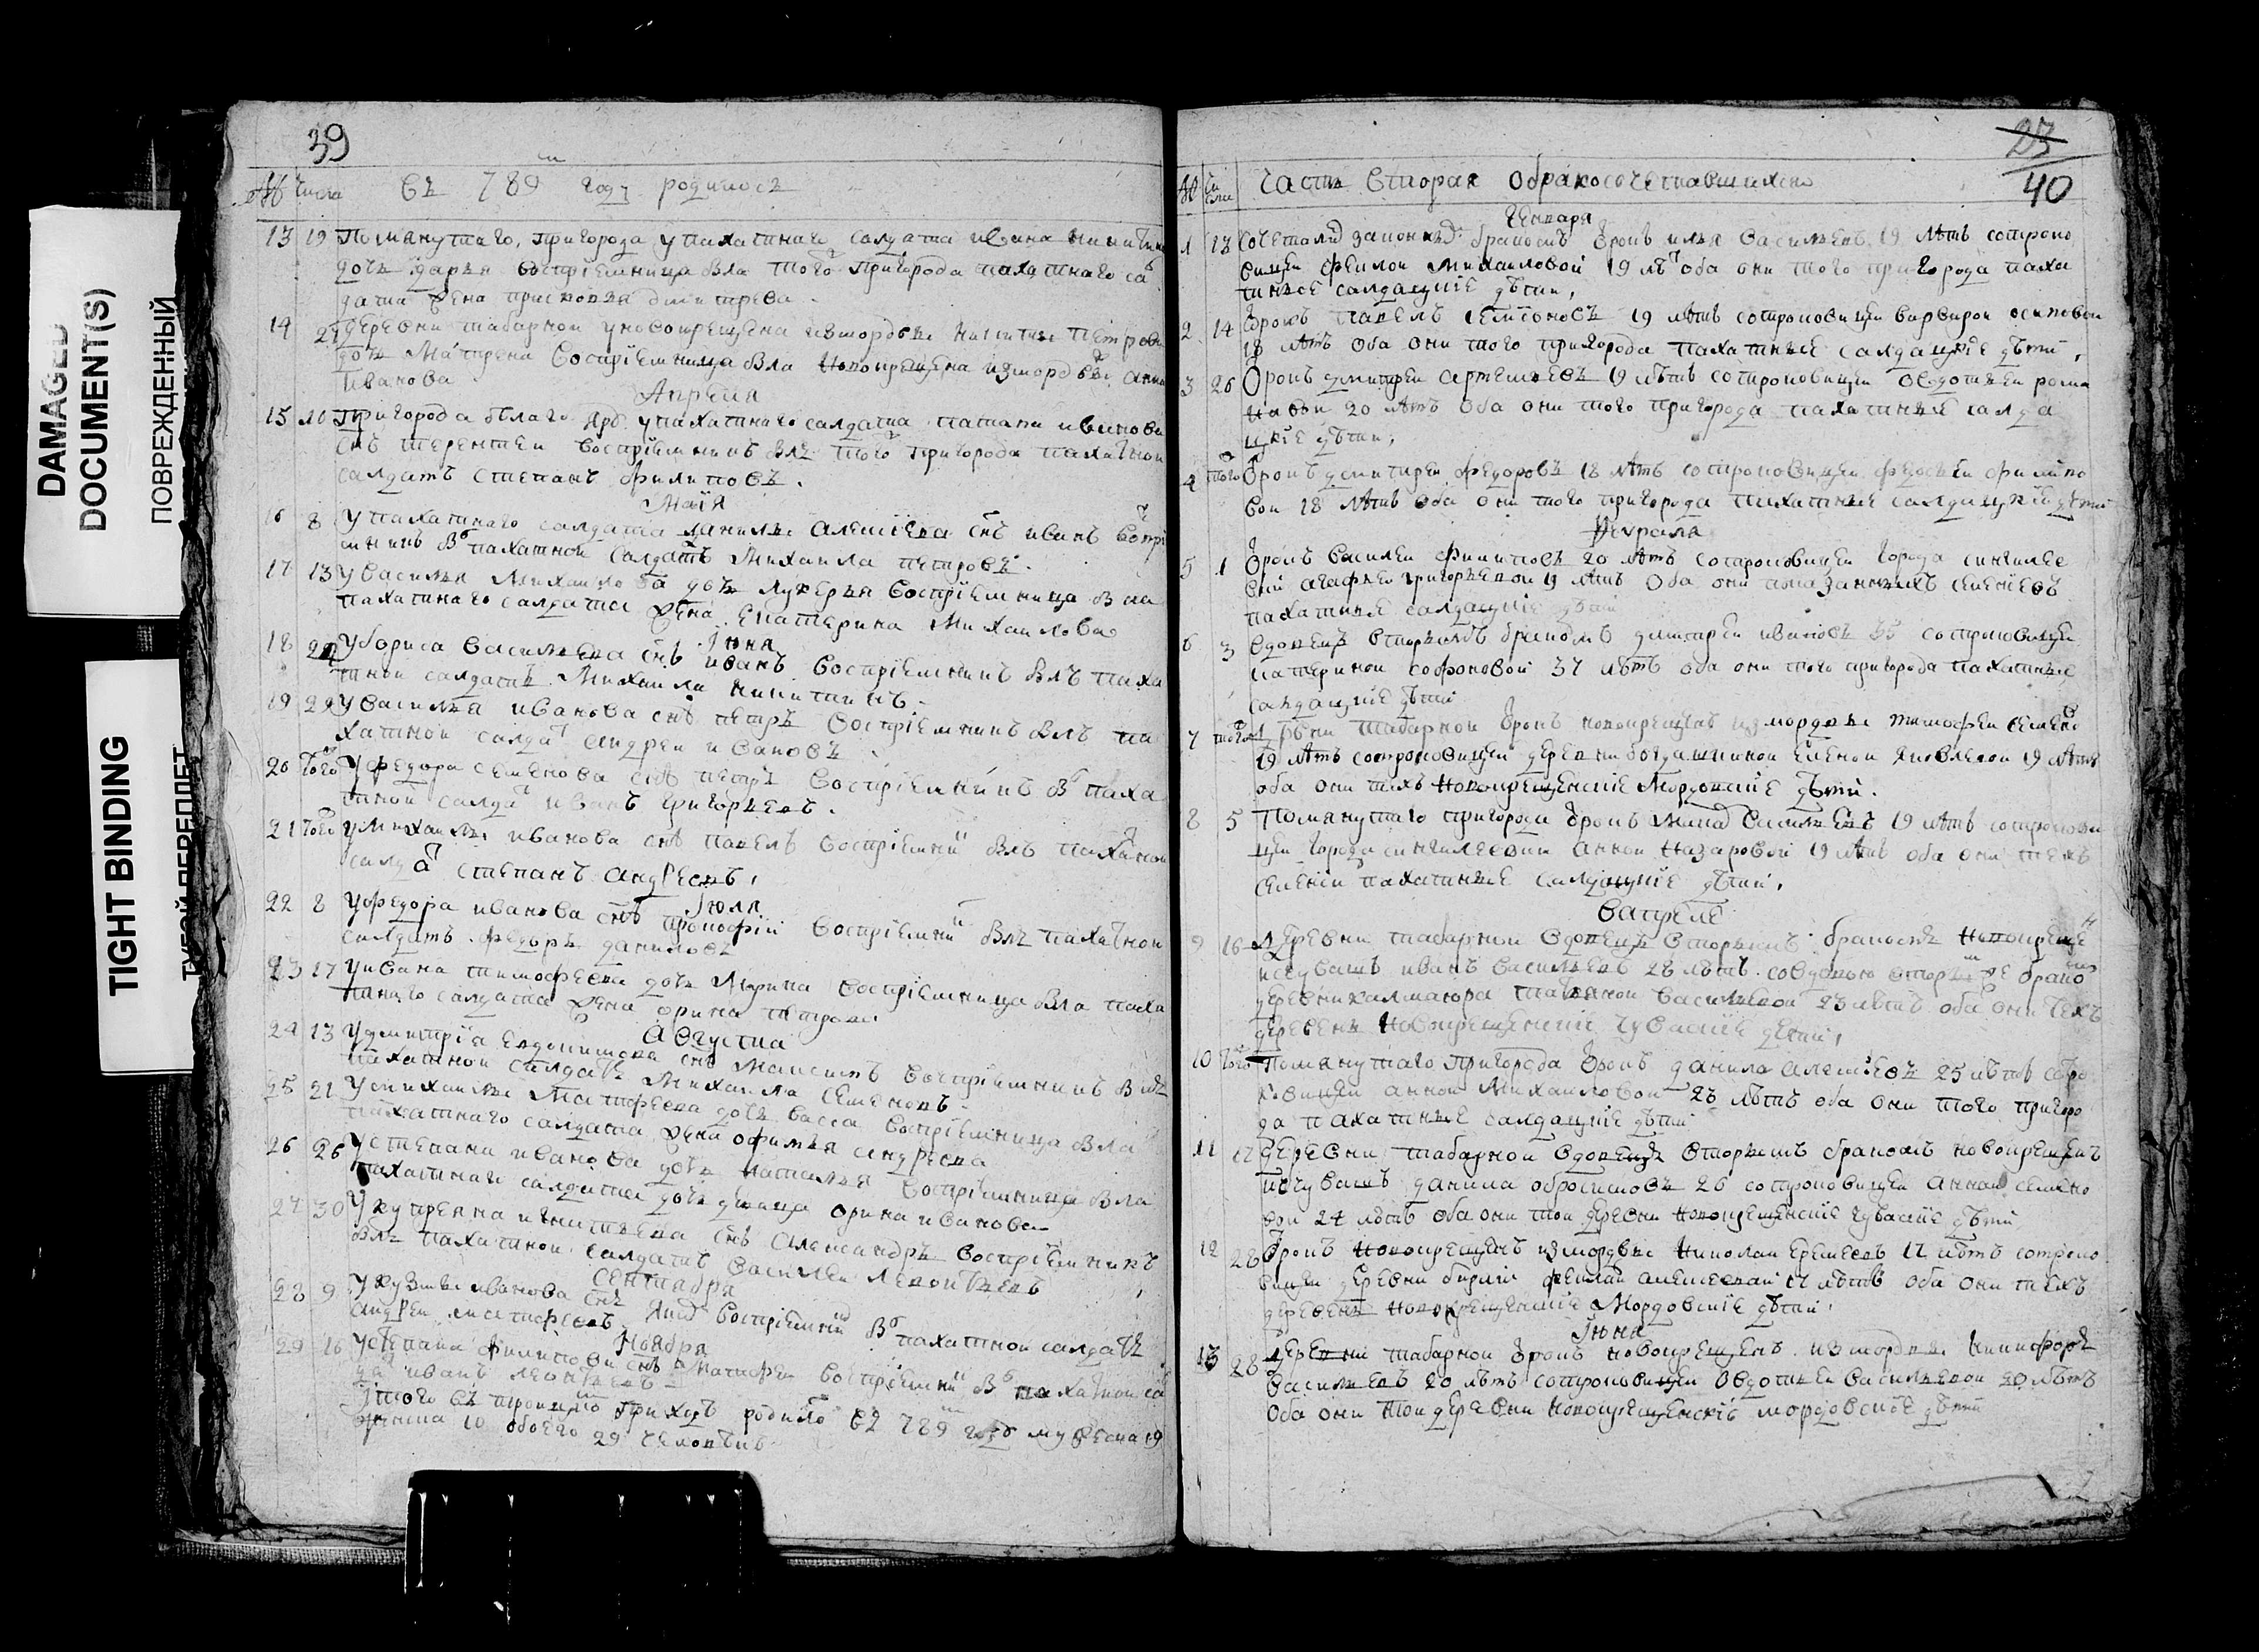 DAMAGED
DOCUMENT(S)
ПОВРЕЖДЕННЫЙ
TIGHT BINDING
ТУГОЙ ПЕРЕПЛЕТ
39
№ числа въ 789 году родилось
13 19 Помянутаго, пригорода у пахатнаго салдата ивана никитина
дочь дарья воспріемница была того пригорода пахатнаго сал
дата жена
14 21 деревни табарной у новокрещена измордвы никиты петрова
дочь Матрена воспріемница была новокрещена измордвы анна
иванова
Апреля
15 10 Пригорода белаго яра у пахатнаго салдата
снъ терентеи воспріемникъ былъ того пригорода пахатной
салдатъ степанъ филиповъ.
Маія
16 8 У пахатнаго салдата данилы алексеева снъ иванъ воспрі
мникъ бы пахатной салдатъ Михаила петровъ.
17 13 У василья Михаилова дочь лукерья воспріемница была
пахатнаго салдата жена екатерина Михаилова
Іюня
18 У бориса васильева снъ иванъ воспріемникъ былъ паха
тной салдатъ Михаила никитинъ.
19 29 У василья иванова снъ петръ воспріемникъ былъ па
хатной салдатъ андреи ивановъ
20 того У федора семенова снъ петръ воспріемникъ бы паха
тной салдатъ иванъ григорьевъ.
21 того У михаилы иванова снъ павелъ воспріемникъ былъ пахатной
салдатъ степанъ андреевъ,
Іюля
22 8 У федора иванова снъ прокофій воспріемникъ былъ пахатной
салдатъ федоръ даниловъ
23 17 У ивана тимофеева дочь Марина воспріемница была паха
тнаго салдата жена орина петрова
Августа
24 13 У дмитрія евдокимова снъ Максимъ воспріемникъ былъ
пахатной салдатъ Михаила семеновъ
25 21 У михаилы Матфеева дочь васса воспріемница была
пахатнаго салдата жена офимья андреева
26 26 У степана иванова дочь наталья воспріемница была
пахатнаго салдата дочь девица орина иванова
27 30 У купреяна игнатьева снъ александръ воспріемникъ
былъ пахатной салдатъ василеи леонтьевъ
Сентября
28 9 У кузмы иванова снъ воспріемникъ бы пахатной салдатъ
андреи матфеевъ
Ноября
29 16 У степана филипова снъ матфеи воспріемникъ бы пахатной сал
датъ иванъ леонтьевъ
Итого въ приходе родилось въ 789 году мужеска 19
женска 10 обоего 29 человекъ
23
40
№ числа Часть вторая о бракосочетавшихся
Генваря
1 13 Сочетался законнымъ бракомъ отрокъ илья васильевъ 19 летъ сотроко
вицеи феклой Михаиловой 19 летъ оба они того пригорода паха
тные салдацкіе дети,
2 14 Отрокъ павелъ семеновъ 19 летъ сотроковицеи варварой осиповои
18 летъ оба они того пригорода пахатные салдацкіе дети,
3 26 Отрокъ дмитреи артемьевъ 19 летъ сотроковицеи овдотьеи рома
новои 20 летъ оба они того пригорода пахатные салда
цкіе дети,
4 того Отрокъ дмитреи федоровъ 18 летъ сотроковицеи федосьеи филипо
вои 18 летъ оба они того пригорода пахатные салдацкіе дети
Февраля
5 1 Отрокъ василеи филиповъ 20 летъ сотроковицеи города сингилее
вскаго агафьеи григорьевои 19 летъ оба они
пахатные салдацкіе дети
6 3 вдовецъ вторымъ бракомъ дмитреи ивановъ 35 сотроковицеи
катериной софоновой 37 летъ оба они того пригорода пахатные
салдацкіе дети
7 того деревни табарной отрокъ новокрещенъ измордвы тимофеи семено
19 летъ сотроковицеи деревни богдашкиной еленой яковлевой 19 летъ
оба они техъ новокрещенскіе Мордовскіе дети.
8 5 Помянутаго пригорода отрокъ васильевъ 19 летъ сотрокови
цеи города сингилеевскаго анной назаровой 19 летъ оба они техъ
селеніи пахатные салдацкіе дети,
в апреле
9 16 деревни табарной вдовецъ вторымъ бракомъ новокрещенъ
исчувашъ иванъ васильевъ 28 летъ совдовою вторымъ же бракомъ
деревни калмаюра татьяной васильевой 23 летъ оба они техъ
деревень новокрещенскіе чувашскіе дети,
10 того Помянутаго пригорода отрокъ данила алексеевъ 25 летъ сотро
ковицеи анной Михаиловой 23 летъ оба они того пригоро
да пахатные салдацкіе дети
11 17 деревни табарной вдовецъ вторымъ бракомъ новокрещенъ
исчувашъ данила 26 сотроковицеи анной семено
вой 24 летъ оба они тои деревни новокрещенскіе чувашскіе дети
12 28 отрокъ новокрещенъ измордвы николаи еремеевъ 17 летъ сотроко
вицеи деревни феклой алексеевой 17 летъ оба они техъ
деревень новокрещенскіе Мордовскіе дети.
Іюня
13 28 деревни табарной отрокъ новокрещенъ измордвы никифоръ
васильевъ 20 летъ сотроковицеи овдотьеи васильевой 20 летъ
оба они тои деревни новокрещенскіе мордовскіе дети